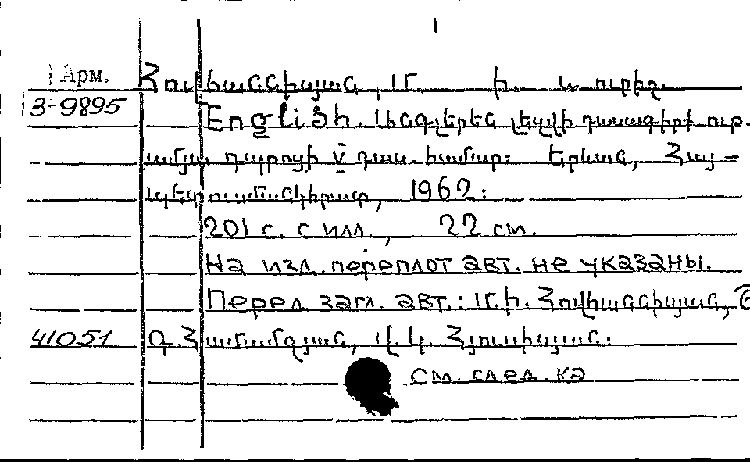 Арм. Հովհաննիսյան, Մ. Ի. և ուրիշ.
3-9895 English. Անգլերեն լեզվի դասագիրք ութ-
ամյա դպրոցի V դաս. համար: Երևան, Հայ-
պետուսմանկհրատ, 1962:
201 с. с илл., 22 см.
На изд. переплот авт. не указаны.
Перед загл. авт.: Մ. Ի. Հովհաննիսյան,
41051 Դ. Համամջյան, Վ. Կ. Հյուսիսյան:
См. след. ка